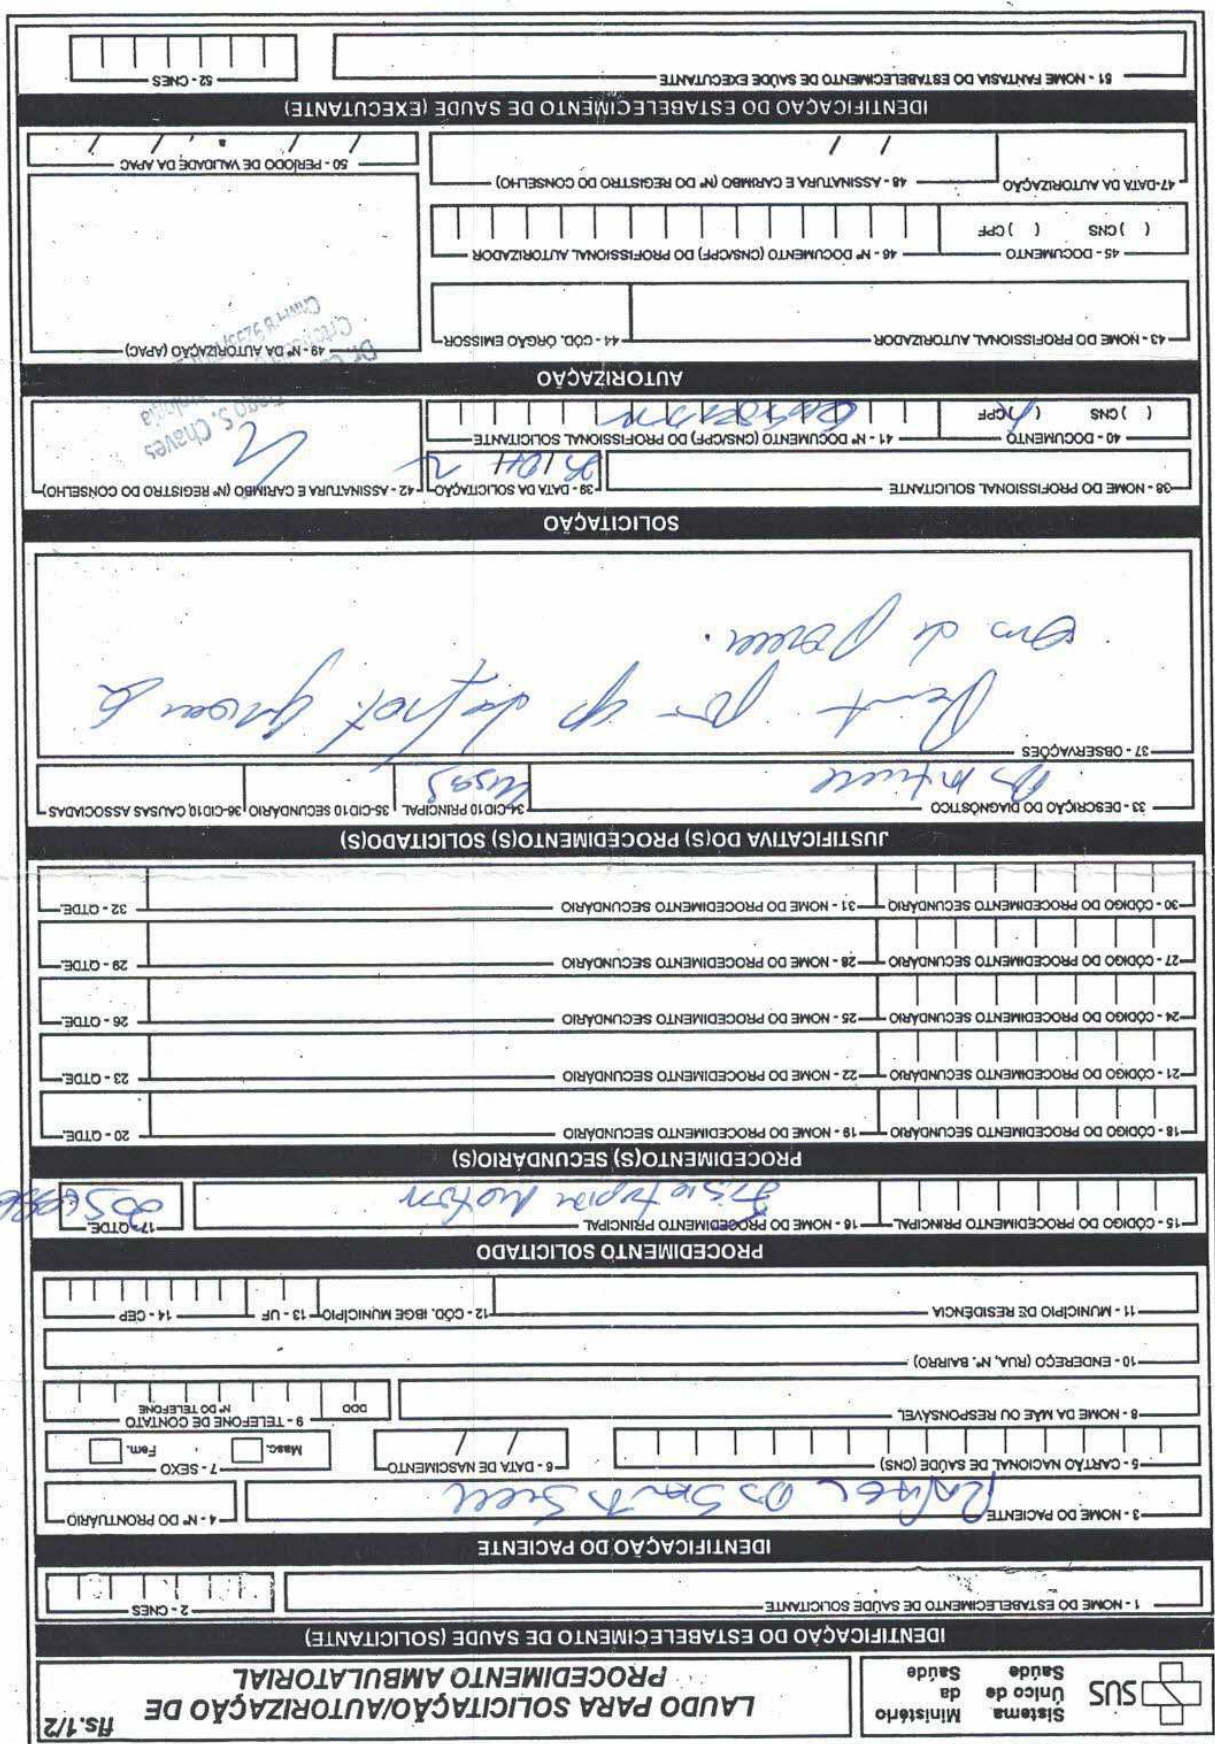 SUS
Sistema Único de Saúde
Ministério da Saúde
LAUDO PARA SOLICITAÇÃO/AUTORIZAÇÃO DE PROCEDIMENTO AMBULATORIAL
fls.1/2
IDENTIFICAÇÃO DO ESTABELECIMENTO DE SAÚDE (SOLICITANTE)
1 - NOME DO ESTABELECIMENTO DE SAÚDE SOLICITANTE
2 - CNES
IDENTIFICAÇÃO DO PACIENTE
3 - NOME DO PACIENTE
4 - Nº DO PRONTUÁRIO
5 - CARTÃO NACIONAL DE SAÚDE (CNS)
6 - DATA DE NASCIMENTO
/ /
7 - SEXO
Masc. Fem.
8 - NOME DA MÃE OU RESPONSÁVEL
9 - TELEFONE DE CONTATO
DDD Nº DO TELEFONE
10 - ENDEREÇO (RUA, Nº, BAIRRO)
11 - MUNICÍPIO DE RESIDÊNCIA
12 - CÓD. IBGE MUNICÍPIO
13 - UF
14 - CEP
PROCEDIMENTO SOLICITADO
15 - CÓDIGO DO PROCEDIMENTO PRINCIPAL
16 - NOME DO PROCEDIMENTO PRINCIPAL
17 - QTDE.
PROCEDIMENTO(S) SECUNDÁRIO(S)
18 - CÓDIGO DO PROCEDIMENTO SECUNDÁRIO
19 - NOME DO PROCEDIMENTO SECUNDÁRIO
20 - QTDE.
21 - CÓDIGO DO PROCEDIMENTO SECUNDÁRIO
22 - NOME DO PROCEDIMENTO SECUNDÁRIO
23 - QTDE.
24 - CÓDIGO DO PROCEDIMENTO SECUNDÁRIO
25 - NOME DO PROCEDIMENTO SECUNDÁRIO
26 - QTDE.
27 - CÓDIGO DO PROCEDIMENTO SECUNDÁRIO
28 - NOME DO PROCEDIMENTO SECUNDÁRIO
29 - QTDE.
30 - CÓDIGO DO PROCEDIMENTO SECUNDÁRIO
31 - NOME DO PROCEDIMENTO SECUNDÁRIO
32 - QTDE.
JUSTIFICATIVA DO(S) PROCEDIMENTO(S) SOLICITADO(S)
33 - DESCRIÇÃO DO DIAGNÓSTICO
34-CID10 PRINCIPAL
35-CID10 SECUNDÁRIO
36-CID10 CAUSAS ASSOCIADAS
37 - OBSERVAÇÕES
SOLICITAÇÃO
38 - NOME DO PROFISSIONAL SOLICITANTE
39 - DATA DA SOLICITAÇÃO
42 - ASSINATURA E CARIMBO (Nº REGISTRO DO CONSELHO)
40 - DOCUMENTO
( ) CNS ( ) CPF
41 - Nº DOCUMENTO (CNS/CPF) DO PROFISSIONAL SOLICITANTE
S. Chaves
AUTORIZAÇÃO
43 - NOME DO PROFISSIONAL AUTORIZADOR
44 - CÓD. ÓRGÃO EMISSOR
49 - Nº DA AUTORIZAÇÃO (APAC)
45 - DOCUMENTO
( ) CNS ( ) CPF
46 - Nº DOCUMENTO (CNS/CPF) DO PROFISSIONAL AUTORIZADOR
47-DATA DA AUTORIZAÇÃO
/ /
48 - ASSINATURA E CARIMBO (Nº DO REGISTRO DO CONSELHO)
50 - PERÍODO DE VALIDADE DA APAC
/ / a / /
IDENTIFICAÇÃO DO ESTABELECIMENTO DE SAÚDE (EXECUTANTE)
51 - NOME FANTASIA DO ESTABELECIMENTO DE SAÚDE EXECUTANTE
52 - CNES